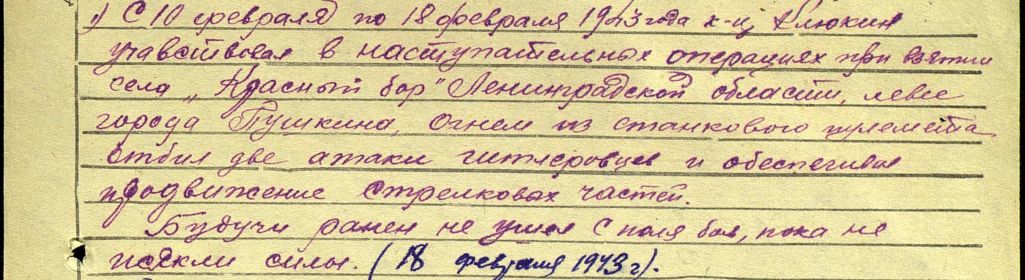 1) С 10 февраля по 18 февраля 1943 года к-ц Клюкин
учавствовал в наступательных операциях при взятии
села „Красный бор" Ленинградской области, левее
города Пушкина, огнем из станкового пулемета
отбил две атаки гитлеровцев и обеспечивал
продвижение стрелковых частей.
Будучи ранен не ушел с поля боя, пока не
иссякли силы. (18 февраля 1943 г).